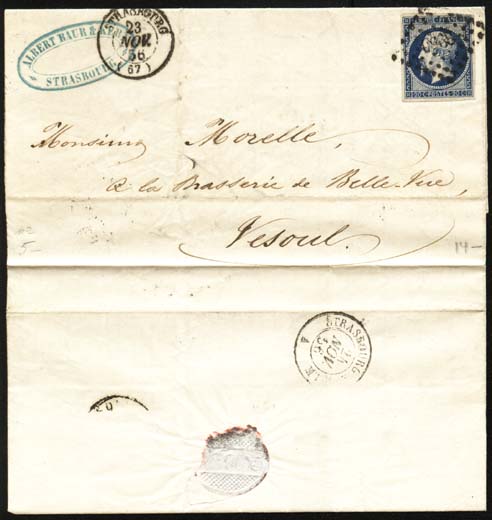 ALBERT BAUR &
STRASBOURG
STRASBOURG
23
NOV.
56
(67)
20 C. POSTES 20 C.
Monsieur Morelle,
à la Brasserie de Belle-Vue,
Vesoul.
5-
14-
STRASBOURG
NOV
56
A